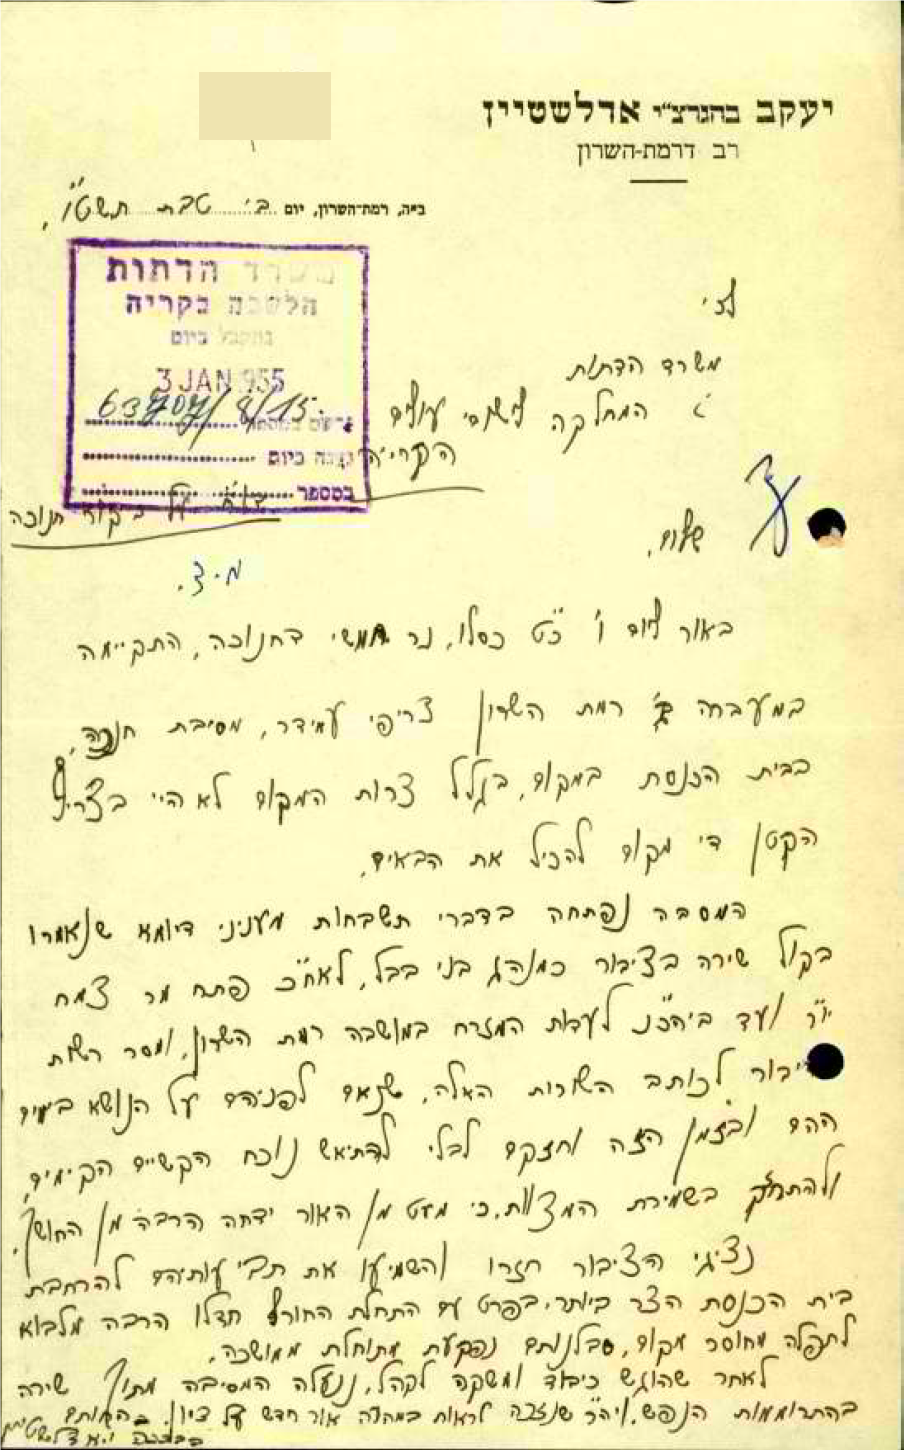 יעקב בהגרצ"י אדלשטיין
רב דרמת-השרון
ב"ה, רמת-השרון, יום ב' טבת תשט"ו,
משרד הדתות
הלשכה בקריה
נתקבל ביום
3 JAN 1955
נרשם במספר 63707/8/15.
נענה ביום
במספר
לכ'
משרד הדתות
המחלקה לישובי עולים
הקריה
דו"ח על ביקור חנוכה
שלום,
מ.צ.
באור ליום ו' כ"ט כסלו, נר חמשי דחנוכה, התקיימה
במעברה ב' רמת השרון צריפי עמידר, מסיבת חנוכה,
בבית הכנסת במקום, בגלל צרות המקום לא היי בצריף
הקטן די מקום להכיל את הבאים.
המסבה נפתחה בדברי תשבחות מעניני דיומא שנאמרו
בקול שירה בציבור כמנהג בני בבל, לאח"כ פתח מר צמח
יו"ר ועד ביהכ"נ לעדות המזרח במושבה רמת השרון, ומסר רשות
דיבור לכותב השורות האלה, שנאם לפניהם על הנושא בימים
ההם ובזמן הזה וחזקם לבלי להתיאש נוכח הקשיים הקיימים,
ולהתחזק בשמירת המצוות, כי מעט מן האור ידחה הרבה מן החושך,
נציגי הציבור חזרו והשמיעו את תביעותיהם להרחבת
בית הכנסת הצר ביותר, בפרט עם התחלת החורף חדלו הרבה מלבוא
לתפלה מחוסר מקום, סבלנותם נפקעת מתוחלת ממושכה.
לאחר שהוגש כיבוד ומשקה לקהל, ננעלה המסיבה מתוך שירה
בהתרוממות הנפש, ויה"ר שנזכה לראות במהרה אור חדש על ציון.
בברכה